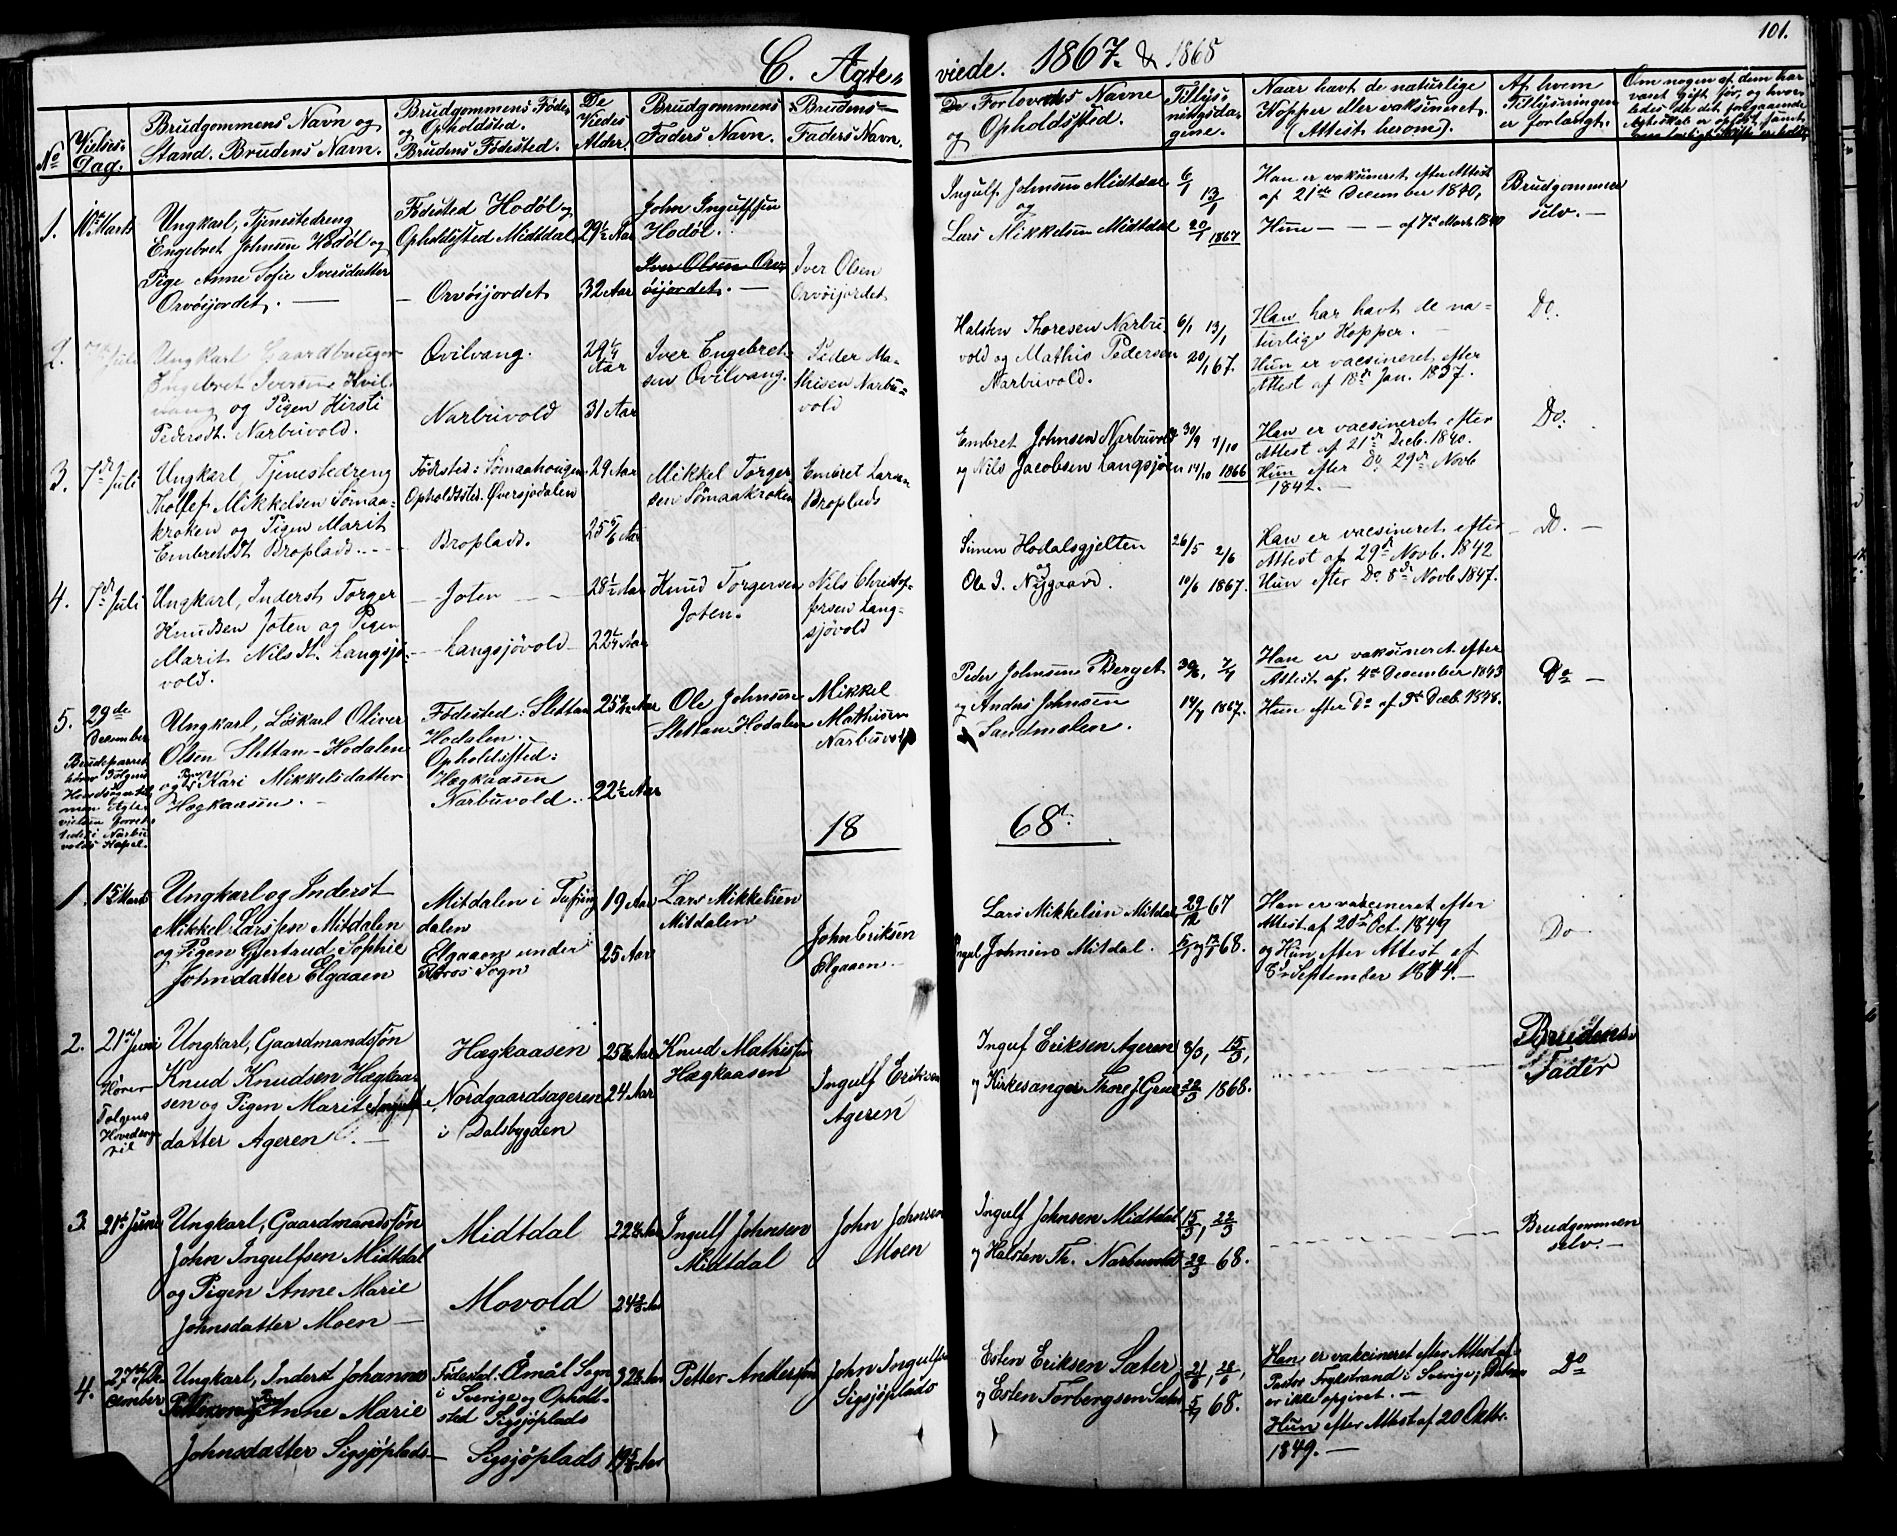 101.
C. Ægte-
viede. 1867 & 1868
No
Vielses-
Dag.
Brudgommens Navn og
Stand. Brudens Navn.
Brudgommens Føde-
og Opholdsted.
Brudens Fødested.
De
Viedes
Alder.
Brudgommens
Faders Navn.
Brudens
Faders Navn.
De Forlovedes Navne
og Opholdssted.
Tillys-
ningsda-
gene.
Naar havt de naturlige
Kopper eller vaksineret.
(Attest herom).
Af hvem
Tillysningen
er forlangt.
Om nogen af dem har
været gift før, og hvor-
1.
10de Marts
Ungkarl, Tjenestedreng
Engebret Johnsen Hodøl og
Pige Anne Sofie Iversdatter
Orvöijordet.
Fødested Hodøl og
Opholdssted Midtdal
Orvöijordet
29½ Aar
32 Aar
John Ingulfsen
Hodøl.
Iver Olsen Orv-
öijordet.
Iver Olsen
Orvöijordet
Ingulf Johnsen Midtdal
og
Lars Mikkelsen Midtdal
6/1 13/1
20/1 1867
Han er vaksineret efter Attest
af 21de December 1840,
Hun — — — af 7de Marts 1840
Brudgommen
selv. —
2.
7de Juli
Ungkarl Gaardbruger
Engebret Iversen Kvil-
vang og Pigen Kirsti
Pedersdt. Narbuvold.
Qvilvang.
Narbuvold
29¼
Aar
31 Aar
Iver Engebret-
sen Qvilvang.
Peder Ma-
thisen Narbu-
vold
Halsten Thoresen Narbu
vold og Mathis Pedersen
Narbuvold.
6/1 13/1
20/1 67.
Han har havt de na-
turlige Kopper. —
Hun er vacsineret efter
Attest af 18de Jan. 1837.
Do.
3.
7de Juli
Ungkarl, Tjenestedreng
Tholfef Mikkelsen Sömaa-
kroken og Pigen Marit
Embretsdt Broplads.
Fødested: Sømaahougen
Opholdsted. Øversjødalen
Broplads.
29 Aar
25 5/6 Aar
Mikkel Torger
sen Sömaakroken
Embret Larsen
Broplads
Embret Johnsen Narbuvold
og Nils Jacobsen Langsjøen
30/9 7/10
14/10 1866
Han er vacsineret efter
Attest af 21de Decb. 1840.
Hun efter Do 29de Novb
1842. —
Do.
4.
7de Juli
Ungkarl, Inderst Torger
Knudsen Joten og Pigen
Marit Nilsdt. Langsjö-
vold.
Joten
Langsjövold
28½ Aar
22¼ Aar
Knud Torgersen
Joten.
Nils Christof-
fersen Lang-
sjövold
Simen Hodalsgjelten
og
Ole I. Nygaard.
26/5 2/6
10/6 1867.
Han er vacsineret efter
Attest af 29de Novb. 1842
Hun efter Do 8de Novb 1847.
Do. —
5.
29de
December
Brudeparret
hører Tolgens
Hovedsogn til
men Ægte-
vielsen forret-
tedes i Narbu
volds Kapel.
Ungkarl, Löskarl Oliver
Olsen Slettan-Hodalen
og Pigen Kari Mikkelsdatter
Hægkaasen. —
Fødested: Slettan
Hodalen.
Opholdssted:
Hægkaasen
Narbuvold.
25 Aar
22½ Aar
Ole Johnsen
Slettan Hodalen
Mikkel
Mathisen
Narbuvold
Peder Johnsen Berget
og Anders Johnsen
Sandmoken.
30/6, 7/7
14/7 1867.
Han er vaksineret efter
Attest af 4de December 1843
Hun efter Do af 3de Decb. 1848.
Do —
18
68.
1.
15 Marts
Ungkarl og Inderst
Mikkel Larssen Mitdalen
og Pigen Gjertrud Sophie
Johnsdatter Elgaaen
Mitdalen i Tufsing
dalen
Elgaaen under
Røros Sogn
19 Aar
25 Aar
Lars Mikkelsen
Mitdalen
John Eriksen
Elgaaen. —
Lars Mikkelsen Mitdal
Ingul Johnsens Mitdal.
29/12 67
5/1 og 12/1 68.
Han er vaxcineret efter
Attest af 20de Oct. 1849
og Hun efter Attest af
September 1844. —
Do
2.
21de Juni
Hører
Tolgens
Hovedsogn
til
Ungkarl, Gaardmandssøn
Knud Knudsen Hægkaa-
sen og Pigen Marit Ingulfs-
datter Ageren
Hægkaasen
Nordgaardsageren
i Dalsbygden
25 Aar
24 Aar
Knud Mathissen
Hægkaasen
Ingulf Eriksen
Ageren
Ingulf Eriksen Ageren
og Kirkesanger Thore J. Gran
8/3, 15/3,
22/3 1868.
Brudens
Fader
3.
21de Juni
Ungkarl, Gaardmandssøn
John Ingulfsen Midtdal
og Pigen Anne Marie
Johnsdatter Moen —
Midtdal
Movold
22 Aar
24 Aar
Ingulf Johnsen
Midtdal
John Johnsen
Moen
Ingulf Johnsen Midtdal
og Halsten Th. Narbuvold
15/3, 22/3
29/3 68.
Brudgommen
selv. —
4.
27de De-
cember
Ungkarl, Inderst Johannes
Pettersen og Pigen Anne Marie
Johnsdatter Sigsjöplads —
Fødested: Åmål Sogn
i Sverige og Ophold-
sted Sigsjöplads
Sigsjöplads
32 Aar
19 5/6 Aar
Petter Andersen
John Ingulfsen
Sigsjöplads
Esten Eriksen Sæter
og Esten Torbergsen Sæter
21/6, 28/6,
5/7 68.
Han er vakcineret efter Attest af
Pastor Frykstrand i Sverige, Datum
er ikke opgivet. —
Hun efter Attest af 20 Octbr.
1849. —
Do